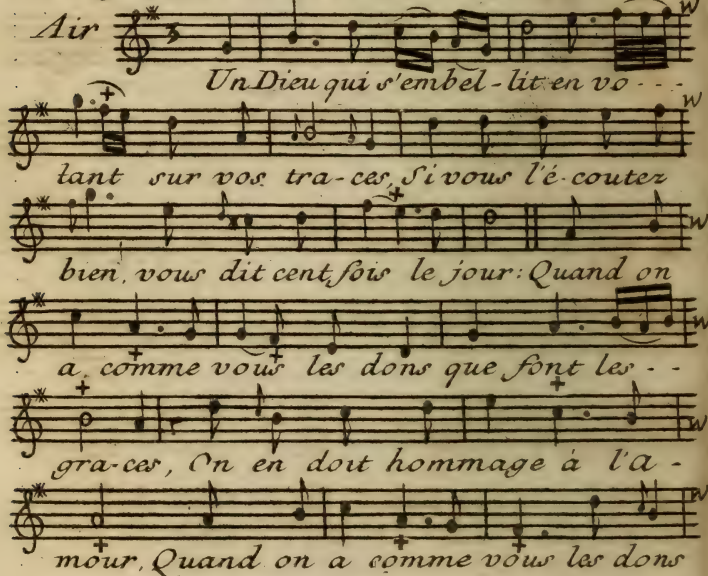 Air
Un Dieu qui s'embel-lit en vo - - -
tant sur vos tra-ces, Si vous l'é-coutez
bien, vous dit cent fois le jour: Quand on
a comme vous les dons que font les - -
gra-ces, On en doit hommage à l'A -
mour, Quand on a comme vous les dons